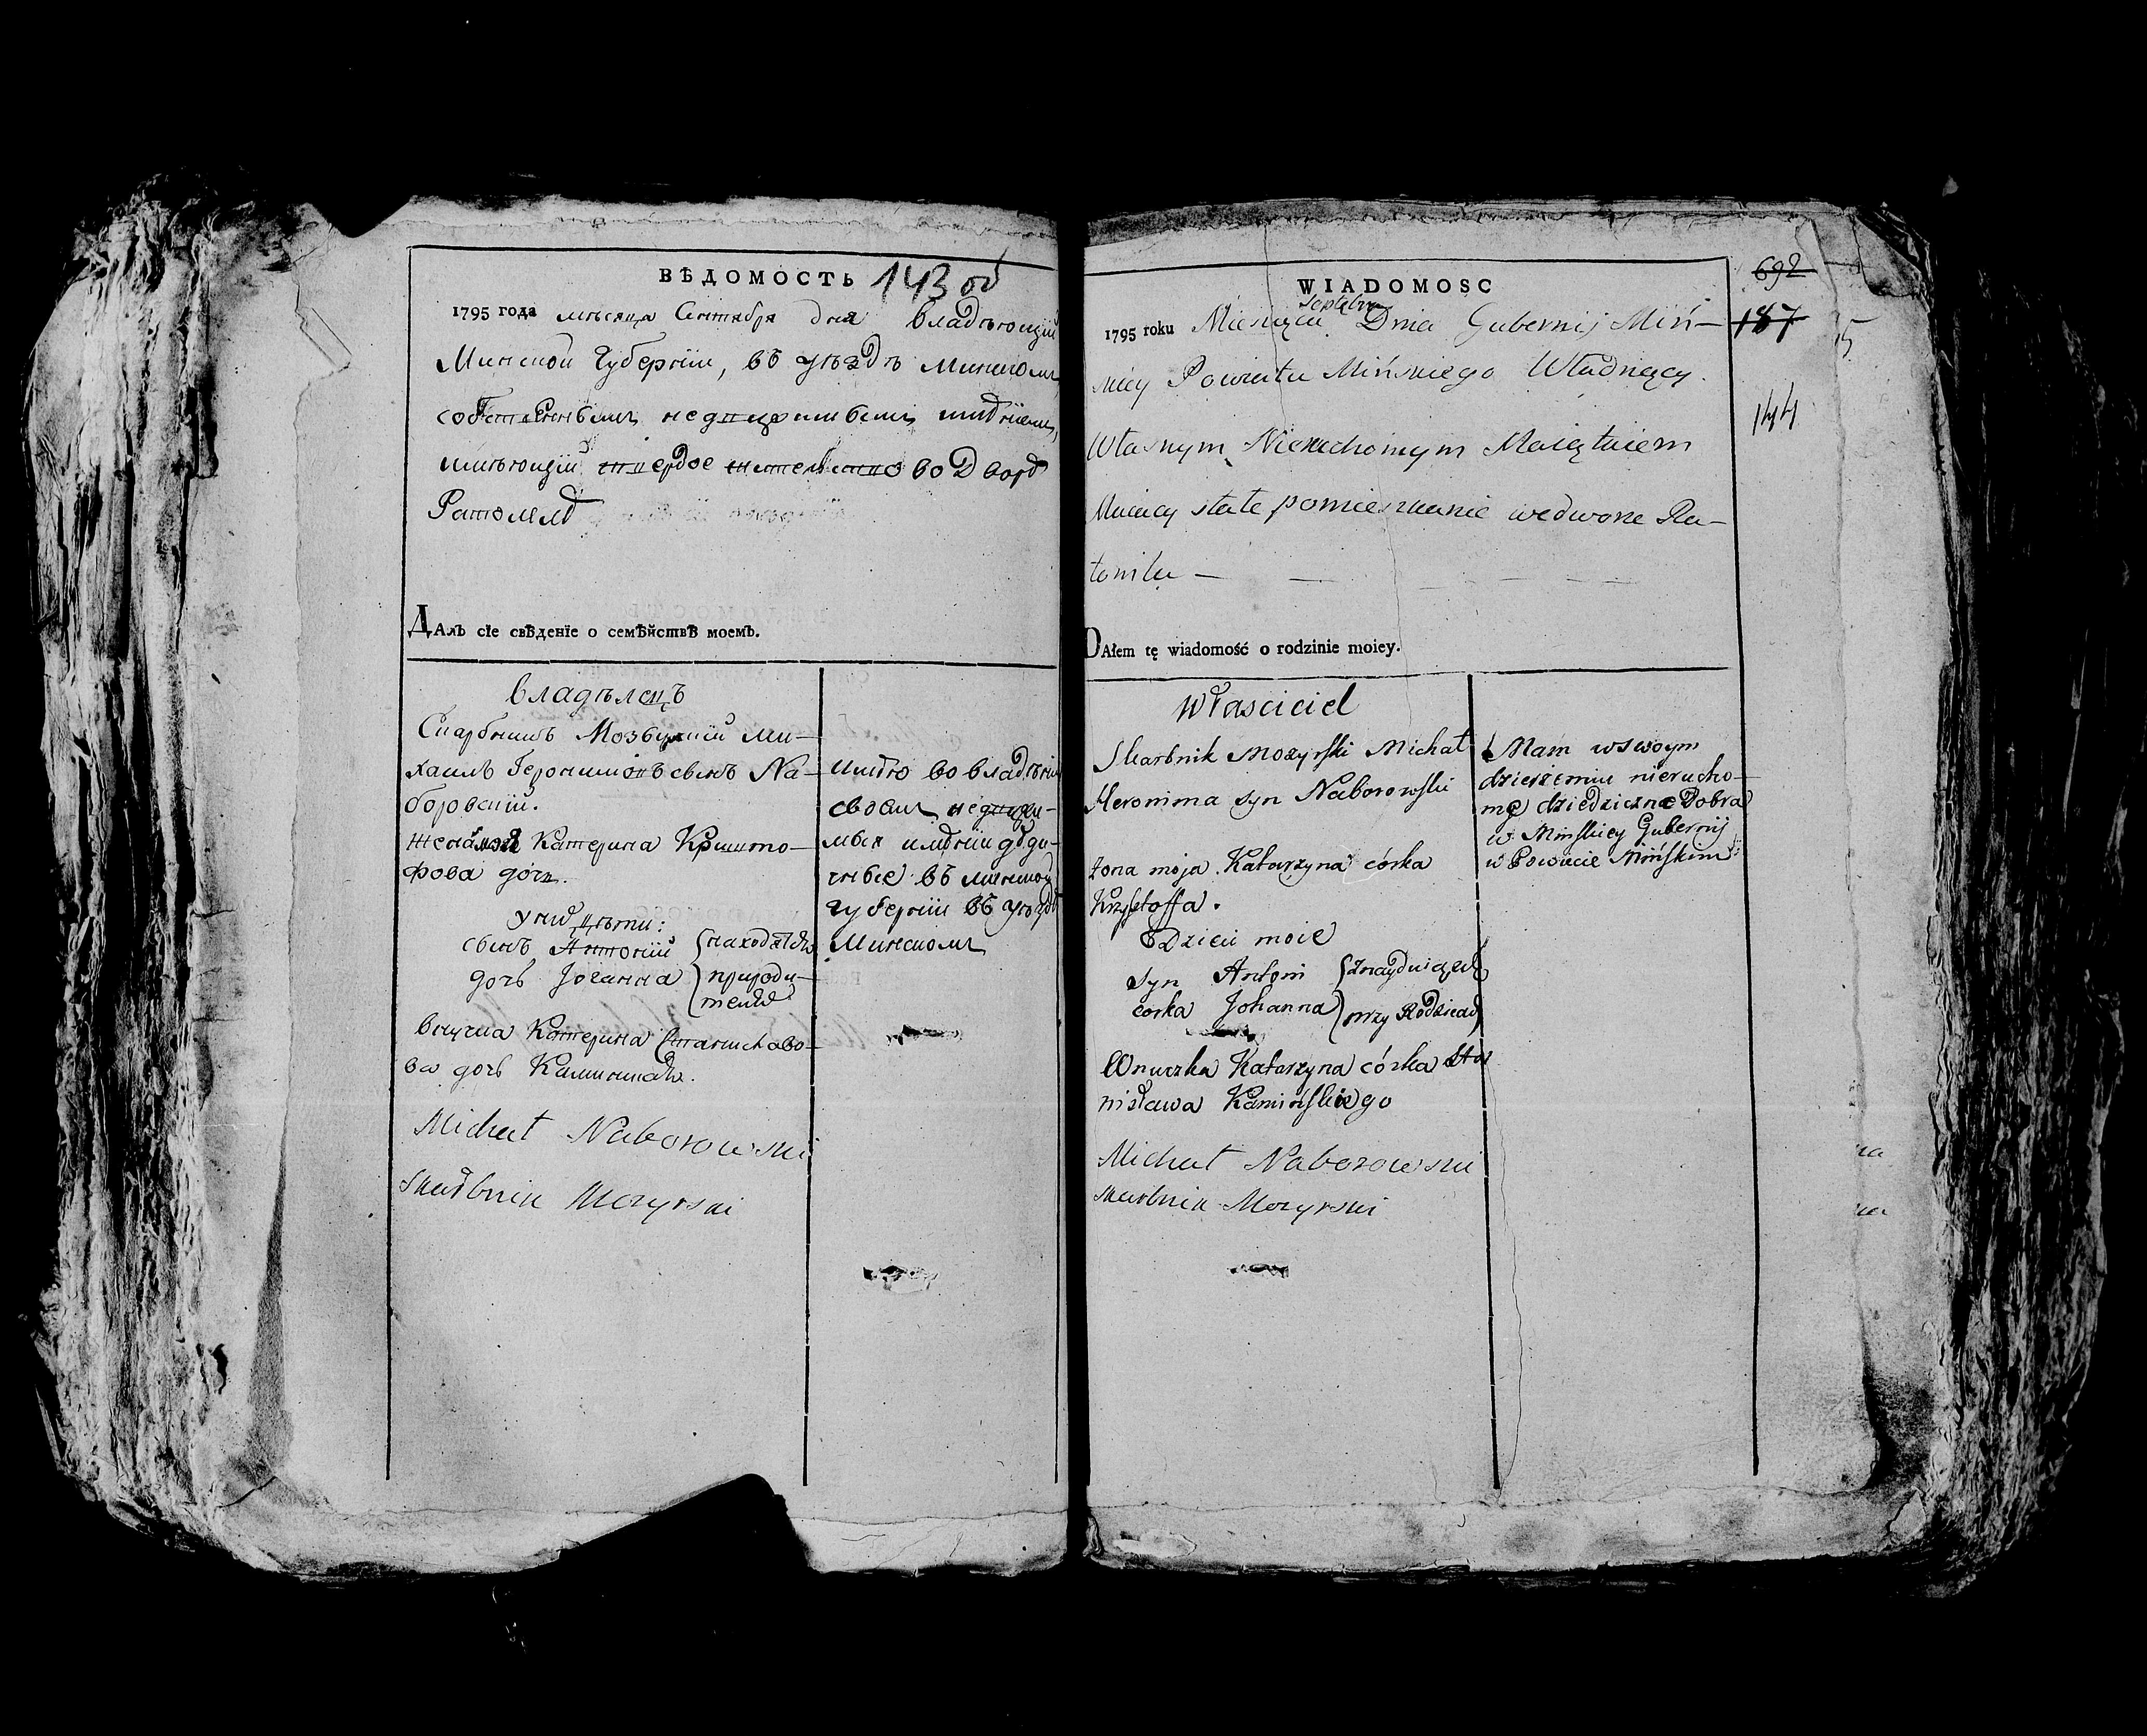 ВѢДОМОСТЬ 143 об
1795 года мѣсяца Сентября дня владѣющій
Минской Губерніи, въ уѣздѣ Минскомъ
собственнымъ недвижимымъ имѣніемъ,
имѣющій твердое жительство во Дворѣ
Ратомлѣ
ДАлъ сіе свѣденіе о семѣйствѣ моемъ.
владѣлецъ
Скарбникъ Мозырскій Ми-
хаилъ Геронимовъ сынъ На-
боровскій.
жена моя Катерина Кришто-
фова дочь.
у них дѣти:
сынъ Антоній находятся
дочь Іоганна при роди-
теляхъ
внучка Катерина Станиславо-
ва дочь Каминская.
Michał Naborowski
Skarbnik Mozyrski
имѣю во владѣніи
своемъ недвижи-
мыя имѣнии дѣди-
чные въ минской
губерніи въ уѣздѣ
Минскомъ
WIADOMOSC
692
187
144
1795 roku Miesiąca Septebra Dnia Gubernij Miń-
skiey Powiatu Mińskiego Władnący
Własnym Nieruchomym Maiątkiem
Maiący stałe pomieszkanie wedworze Ra-
tomlu —
DAłem tę wiadomość o rodzinie moiey.
Właściciel
Skarbnik Mozyrski Michał
Heronima syn Naborowski
żona moja Katarzyna córka
Krzysztoffa.
Dzieci moie
syn Antoni znayduiące się
corka Johanna przy Rodzicach
Wnuczka Katarzyna córka Sta
nisława Kamińskiego
Michał Naborowski
skarbnik Mozyrski
Mam wswoym
dzierżeniu nierucho-
mę dziedziczne Dobra
w Minskiey Gubernij
w Powiecie Mińskim